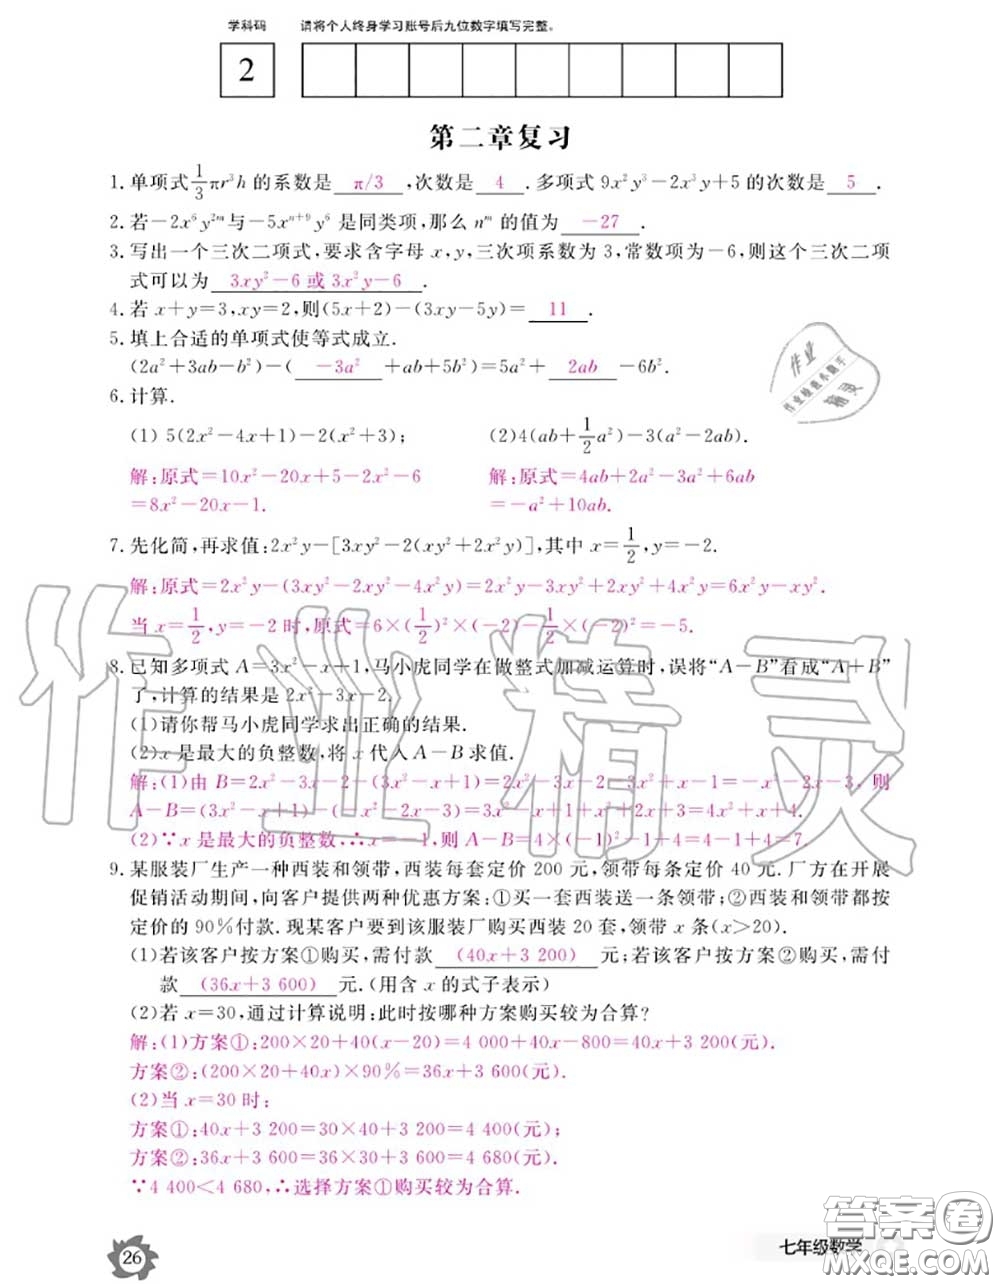 学科码 请将个人终身学习账号后九位数字填写完整。
2
第二章复习
1.单项式1/3πr³h的系数是 π/3 ,次数是 4 .多项式9x²y³-2x³y+5的次数是 5 .
2.若-2x⁶y²ᵐ与-5xⁿ⁺⁹y⁶是同类项,那么nᵐ的值为 -27 .
3.写出一个三次二项式,要求含字母x,y,三次项系数为3,常数项为-6,则这个三次二项
式可以为 3xy²-6或3x²y-6 .
4.若x+y=3,xy=2,则(5x+2)-(3xy-5y)= 11 .
5.填上合适的单项式使等式成立.
(2a²+3ab-b²)-( -3a² +ab+5b²)=5a²+ 2ab -6b².
6.计算.
(1) 5(2x²-4x+1)-2(x²+3); (2)4(ab+1/2a²)-3(a²-2ab).
解:原式=10x²-20x+5-2x²-6 解:原式=4ab+2a²-3a²+6ab
=8x²-20x-1. =-a²+10ab.
7.先化简,再求值:2x²y-[3xy²-2(xy²+2x²y)],其中x=1/2,y=-2.
解:原式=2x²y-(3xy²-2xy²-4x²y)=2x²y-3xy²+2xy²+4x²y=6x²y-xy².
当x=1/2,y=-2时,原式=6×(1/2)²×(-2)-1/2×(-2)²=-5.
8.已知多项式A=3x²-x+1,马小虎同学在做整式加减运算时,误将“A-B”看成“A+B”
了,计算的结果是2x²-3x-2.
(1)请你帮马小虎同学求出正确的结果.
(2)x是最大的负整数,将x代入A-B求值.
解:(1)由B=2x²-3x-2-(3x²-x+1)=2x²-3x-2-3x²+x-1=-x²-2x-3,则
A-B=(3x²-x+1)-(-x²-2x-3)=3x²-x+1+x²+2x+3=4x²+x+4.
(2)∵x是最大的负整数,∴x=-1,则A-B=4×(-1)²-1+4=4-1+4=7.
9.某服装厂生产一种西装和领带,西装每套定价200元,领带每条定价40元.厂方在开展
促销活动期间,向客户提供两种优惠方案:①买一套西装送一条领带;②西装和领带都按
定价的90%付款.现某客户要到该服装厂购买西装20套,领带x条(x>20).
(1)若该客户按方案①购买,需付款 (40x+3 200) 元;若该客户按方案②购买,需付
款 (36x+3 600) 元.(用含x的式子表示)
(2)若x=30,通过计算说明:此时按哪种方案购买较为合算?
解:(1)方案①:200×20+40(x-20)=4 000+40x-800=40x+3 200(元).
方案②:(200×20+40x)×90%=36x+3 600(元).
(2)当x=30时:
方案①:40x+3 200=30×40+3 200=4 400(元);
方案②:36x+3 600=36×30+3 600=4 680(元).
∵4 400<4 680,∴选择方案①购买较为合算.
26
七年级数学
答案卷
MXQE.COM
作业精灵
作业
精灵